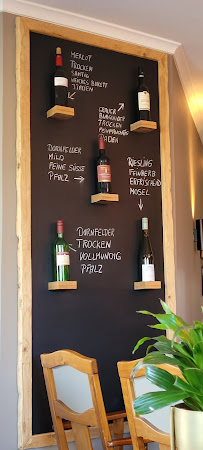 MERLOT
TROCKEN
SAMTIG
WEICHES BUKETT
ITALIEN
GRAUER
BURGUNDER
TROCKEN
BADEN
DORNFELDER
MILD
FEINE SÜSSE
PFALZ
RIESLING
FEINHERB
ERFRISCHEND
MOSEL
DORNFELDER
TROCKEN
VOLLMUNDIG
PFALZ